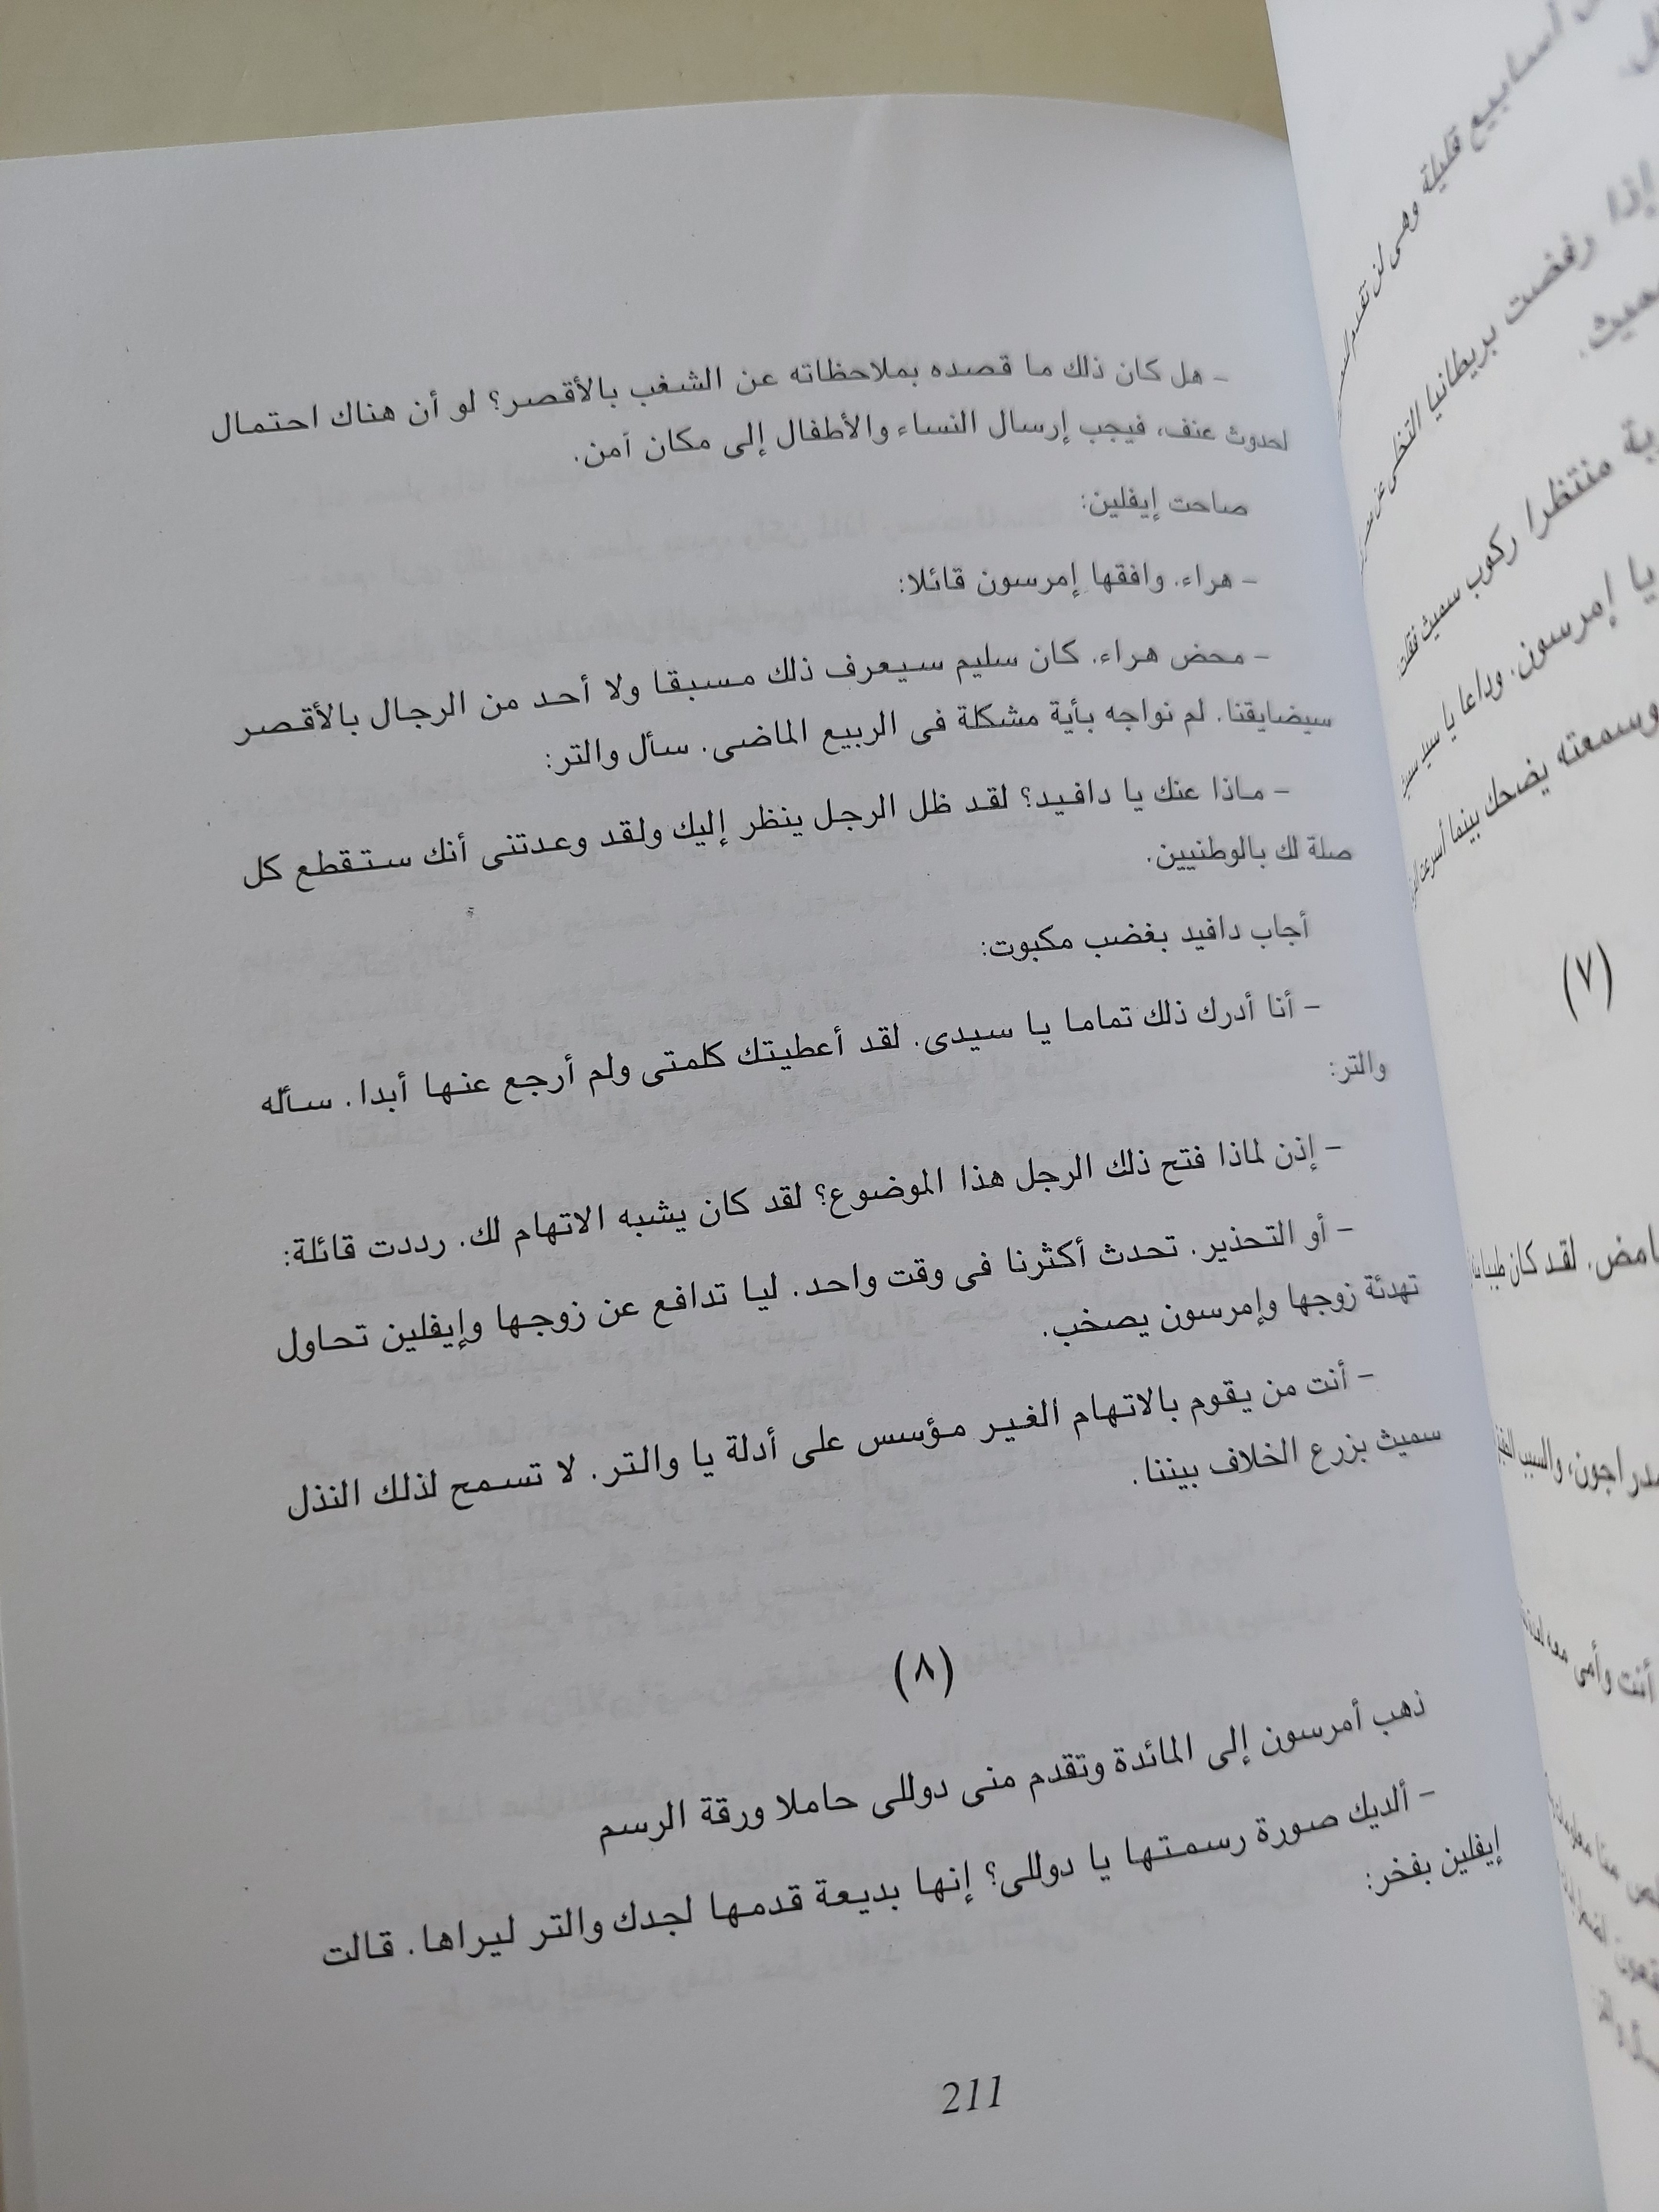 - هل كان ذلك ما قصده بملاحظاته عن الشغب بالأقصر؟ لو أن هناك احتمال
لحدوث عنف، فيجب إرسال النساء والأطفال إلى مكان آمن.
صاحت إيفلين:
- هراء. وافقها إمرسون قائلا:
- محض هراء. كان سليم سيعرف ذلك مسبقا ولا أحد من الرجال بالأقصر
سيضايقنا. لم نواجه بأية مشكلة فى الربيع الماضى. سأل والتر:
- ماذا عنك يا دافيد؟ لقد ظل الرجل ينظر إليك ولقد وعدتنى أنك ستقطع كل
صلة لك بالوطنيين.
أجاب دافيد بغضب مكبوت:
- أنا أدرك ذلك تماما يا سيدى. لقد أعطيتك كلمتى ولم أرجع عنها أبدا. سأله
والتر:
- إذن لماذا فتح ذلك الرجل هذا الموضوع؟ لقد كان يشبه الاتهام لك. رددت قائلة:
- أو التحذير. تحدث أكثرنا فى وقت واحد. ليا تدافع عن زوجها وإيفلين تحاول
تهدئة زوجها وإمرسون يصخب.
- أنت من يقوم بالاتهام الغير مؤسس على أدلة يا والتر. لا تسمح لذلك النذل
سميث بزرع الخلاف بيننا.
(٨)
ذهب أمرسون إلى المائدة وتقدم منى دوللى حاملا ورقة الرسم
- ألديك صورة رسمتها يا دوللى؟ إنها بديعة قدمها لجدك والتر ليراها. قالت
إيفلين بفخر:
211
أسابيع قليلة وهى لن
إذا رفضت بريطانيا التخلى عن
منتظرا ركوب سميث فقلت:
يا إمرسون. وداعا يا سيد سميث
وسمعته يضحك بينما أسرعت
(٧)
لقد كان طيبا
أنت وأمى معه